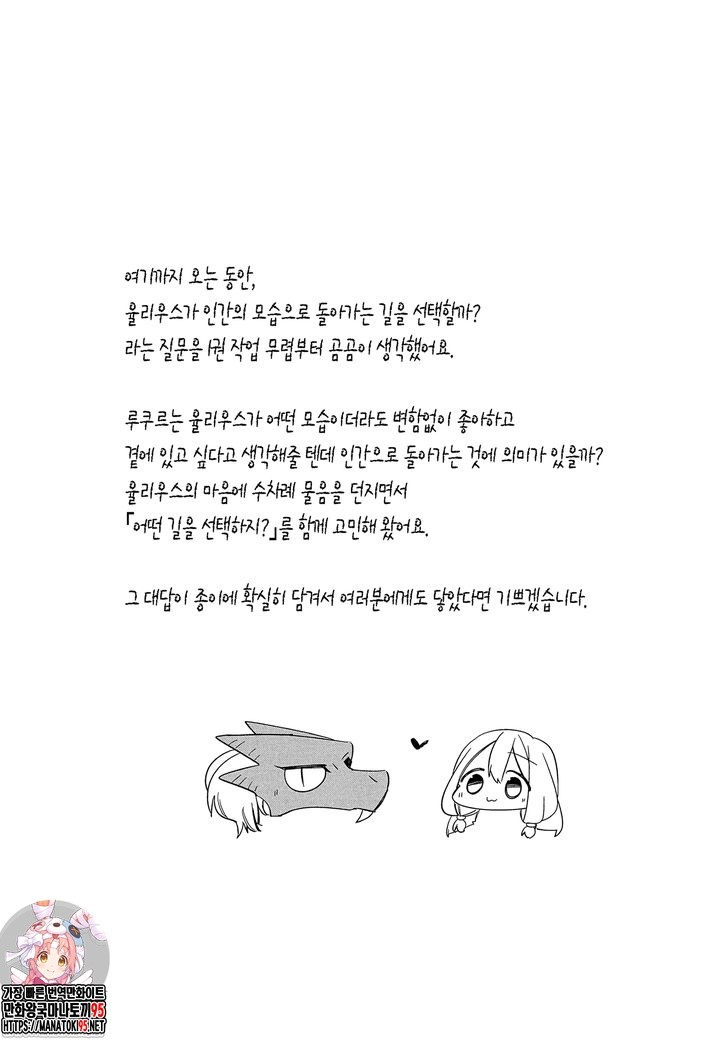 여기까지 오는 동안,
율리우스가 인간의 모습으로 돌아가는 길을 선택할까?
라는 질문을 1권 작업 무렵부터 곰곰이 생각했어요.
루쿠르는 율리우스가 어떤 모습이더라도 변함없이 좋아하고
곁에 있고 싶다고 생각해줄 텐데 인간으로 돌아가는 것에 의미가 있을까?
율리우스의 마음에 수차례 물음을 던지면서
「어떤 길을 선택하지?」를 함께 고민해 왔어요.
그 대답이 종이에 확실히 담겨서 여러분에게도 닿았다면 기쁘겠습니다.
가장 빠른 번역만화사이트
만화왕국마나토끼95
HTTPS://MANATOKI95.NET